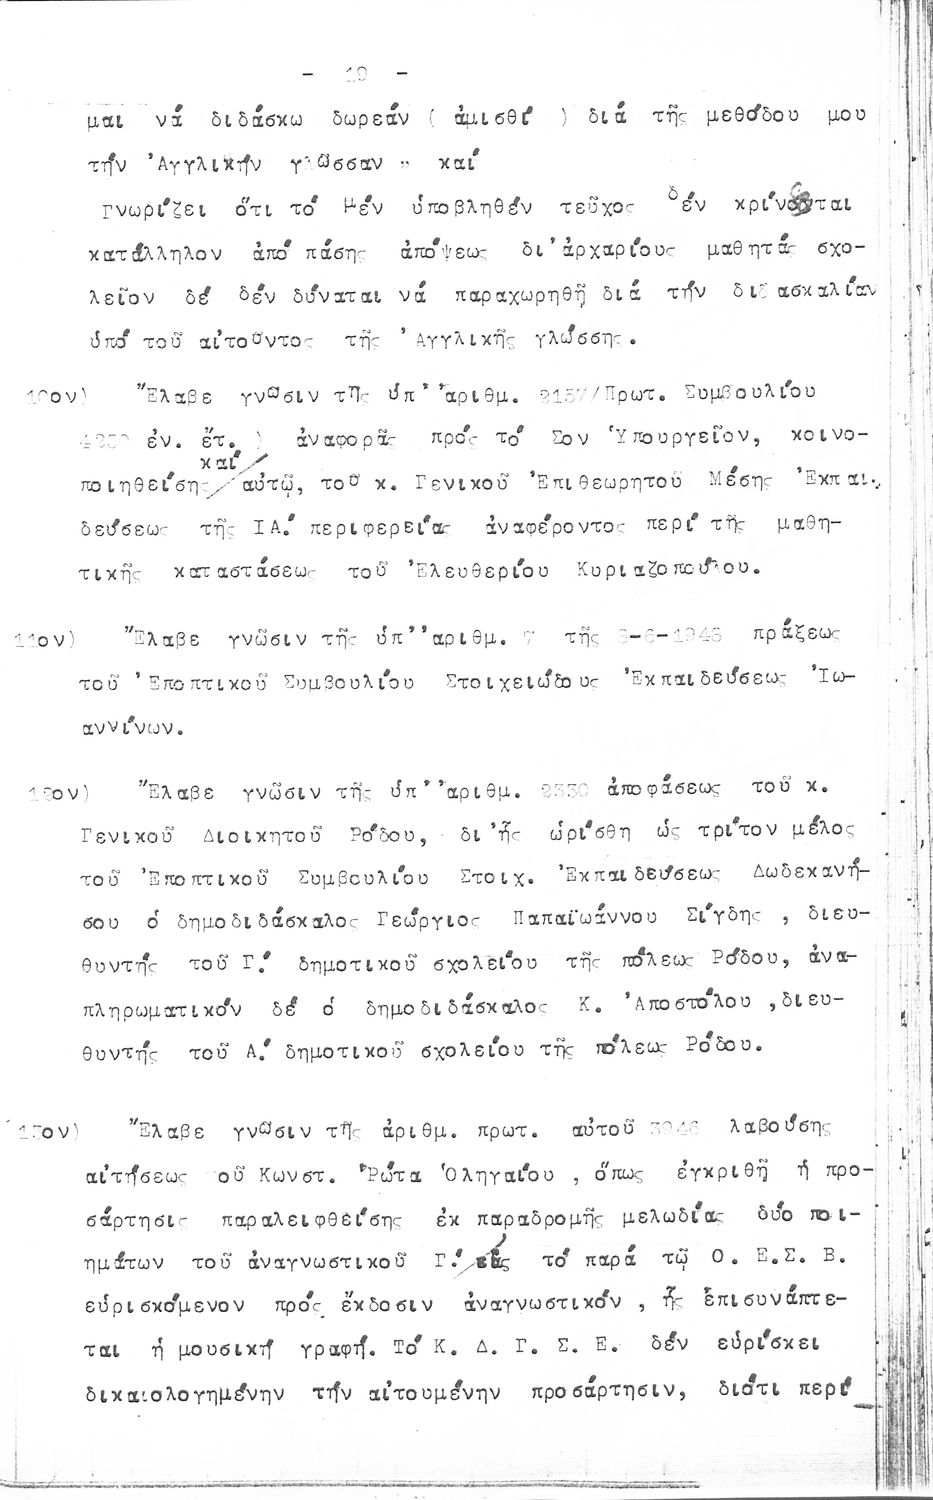 - 19 -
μαι νά διδάσκω δωρεάν ( ἀμισθί ) διά τῆς μεθόδου μου
τήν Ἀγγλικήν γλῶσσαν " καί
Γνωρίζει ὅτι τό μέν ὑποβληθέν τεῦχος δέν κρίνεται
κατάλληλον ἀπό πάσης ἀπόψεως δι'ἀρχαρίους μαθητάς σχο-
λεῖον δέ δέν δύναται νά παραχωρηθῇ διά τήν διδασκαλίαν
ὑπό τοῦ αἰτοῦντος τῆς Ἀγγλικῆς γλώσσης.
10ον) Ἔλαβε γνῶσιν τῆς ὑπ' ἀριθμ. 2157/Πρωτ. Συμβουλίου
ἐν. ἔτ. ) ἀναφορᾶς πρός τό Σον Ὑπουργεῖον, κοινο-
καί
ποιηθείσης αὐτῷ, τοῦ κ. Γενικοῦ Ἐπιθεωρητοῦ Μέσης Ἐκπαι-
δεύσεως τῆς ΙΑ΄ περιφερείας ἀναφέροντος περί τῆς μαθη-
τικῆς καταστάσεως τοῦ Ἐλευθερίου Κυριαζοπούλου.
11ον) Ἔλαβε γνῶσιν τῆς ὑπ''ἀριθμ. 7 τῆς -6-1948 πράξεως
τοῦ Ἐποπτικοῦ Συμβουλίου Στοιχειώδους Ἐκπαιδεύσεως Ἰω-
αννίνων.
12ον) Ἔλαβε γνῶσιν τῆς ὑπ''ἀριθμ. 2330 ἀποφάσεως τοῦ κ.
Γενικοῦ Διοικητοῦ Ρόδου, δι'ἧς ὡρίσθη ὡς τρίτον μέλος
τοῦ Ἐποπτικοῦ Συμβουλίου Στοιχ. Ἐκπαιδεύσεως Δωδεκανή-
σου ὁ δημοδιδάσκαλος Γεώργιος Παπαϊωάννου Σίγδης , διευ-
θυντής τοῦ Γ΄ δημοτικοῦ σχολείου τῆς πόλεως Ρόδου, ἀνα-
πληρωματικόν δέ ὁ δημοδιδάσκαλος Κ. Ἀποστόλου ,διευ-
θυντής τοῦ Α΄ δημοτικοῦ σχολείου τῆς πόλεως Ρόδου.
13ον) Ἔλαβε γνῶσιν τῆς ἀριθμ. πρωτ. αὐτοῦ 3946 λαβούσης
αἰτήσεως οῦ Κωνστ. Ῥώτα Ὀληγαίου , ὅπως ἐγκριθῇ ἡ προ-
σάρτησις παραλειφθείσης ἐκ παραδρομῆς μελωδίας δύο ποι-
ημάτων τοῦ ἀναγνωστικοῦ Γ΄ εἰς τό παρά τῷ Ο. Ε.Σ. Β.
εὑρισκόμενον πρός ἔκδοσιν ἀναγνωστικόν , ἧς ἐπισυνάπτε-
ται ἡ μουσική γραφή. Τό Κ. Δ. Γ. Σ. Ε. δέν εὑρίσκει
δικαιολογημένην τήν αἰτουμένην προσάρτησιν, διότι περί